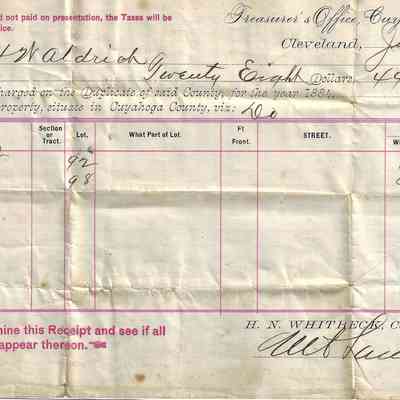 d not paid on presentation, the Taxes will be
ice.
Treasurer's Office, Cuy
Cleveland, Ja
H W Aldrich
Twenty Eight Dollars, 49
charged on the Duplicate of said County, for the year 1884,
roperty, situate in Cuyahoga County, viz: Do
Section or Tract. Lot. What Part of Lot. Ft Front. STREET.
92
98
mine this Receipt and see if all
appear thereon.
H. N. WHITBECK, C